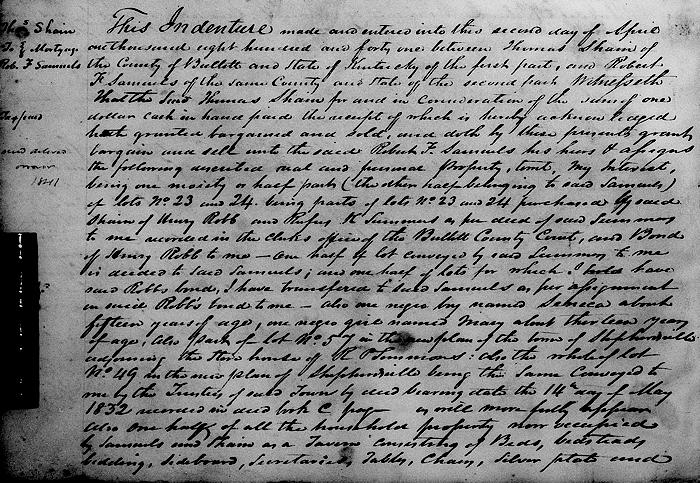 Thos Shain
To } Mortgage
Rob. F Samuels
This Indenture made and entered into this second day of April
one thousand eight hundred and forty one between Thomas Shain of
the County of Bullitt and State of Kentucky of the first part, and Robert
F. Samuels of the same County and State of the second part Witnesseth
That the said Thomas Shain for and in Consideration of the sum of one
dollar cash in hand paid the receipt of which is hereby acknowledged
hath granted bargained and sold, and doth by these presents grant,
bargain and sell unto the said Robert F. Samuels his heirs & assigns
the following described real and personal Property, towit, My Interest,
being one moiety or half part (the other half belonging to said Samuels)
of lots No 23 and 24. being parts of lots No 23 and 24 purchased by said
Shain of Henry Robb and Rufus K Summers as per deed of said Summers
to me recorded in the clerks office of the Bullitt County Court, and Bond
of Henry Robb to me – one half of lot conveyed by said Summers to me
is deeded to said Samuels; and one half of lots for which I hold have
said Robbs bond, I have transferred to said Samuels as per assignment
on said Robb's bond to me – also one negro boy named Seneca about
fifteen years of age, one negro girl named Mary about thirteen years
of age, Also part of lot No 57 in the new plan of the town of Shepherdsville
adjoining the Store house of : also the whole of lot
No 49 in the new plan of Shepherdsville being the same Conveyed to
me by the Trustees of said Town by deed bearing date the 14th day of May
1832 recorded in deed book C page as will more fully appear
Also one half of all the household property now occupied
by Samuels and Shain as a Tavern consisting of Beds, bedsteads
bedding, Sideboard, Secretaries, Tables, Chairs, Silver plate and
1841